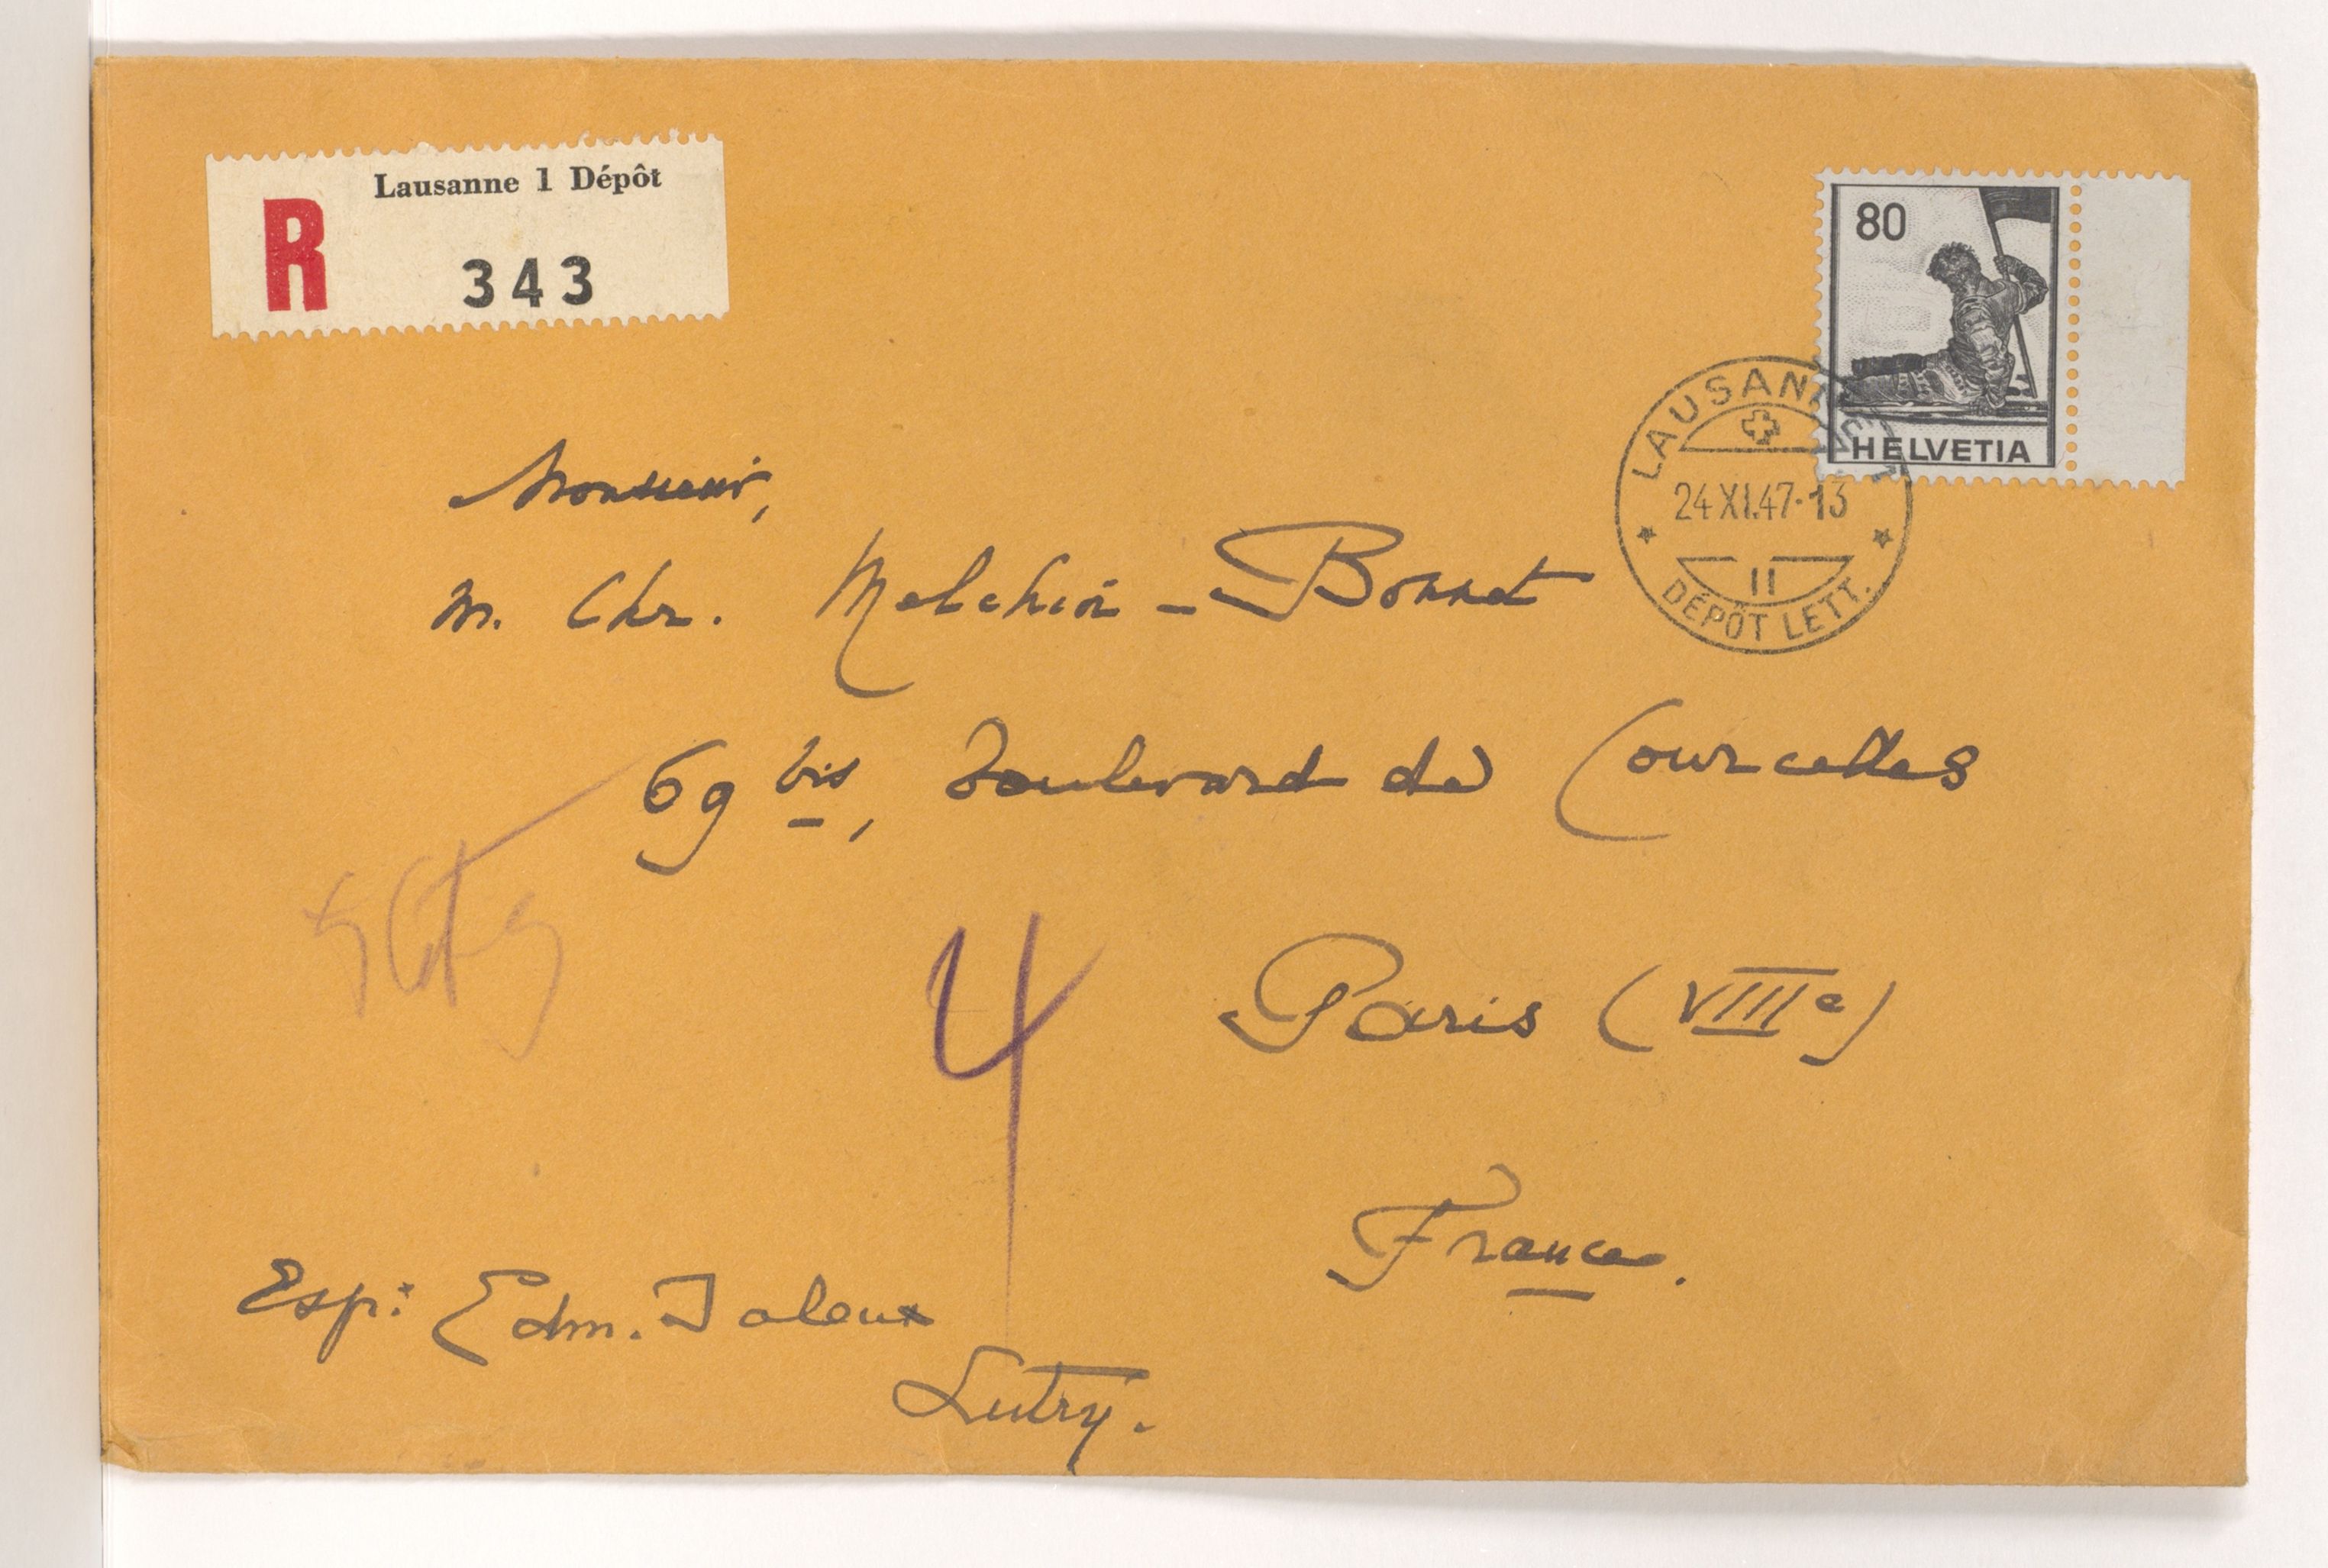 Lausanne 1 Dépôt
R
343
80
HELVETIA
LAUSANNE
24.XI.47-13
II
DÉPÔT LETT.
Monsieur,
M. Chr. Melchior-Bonnet
69 bis, boulevard de Courcelles
Paris (VIIIe)
France.
4
Exp: Edm. Jaloux
Lutry.